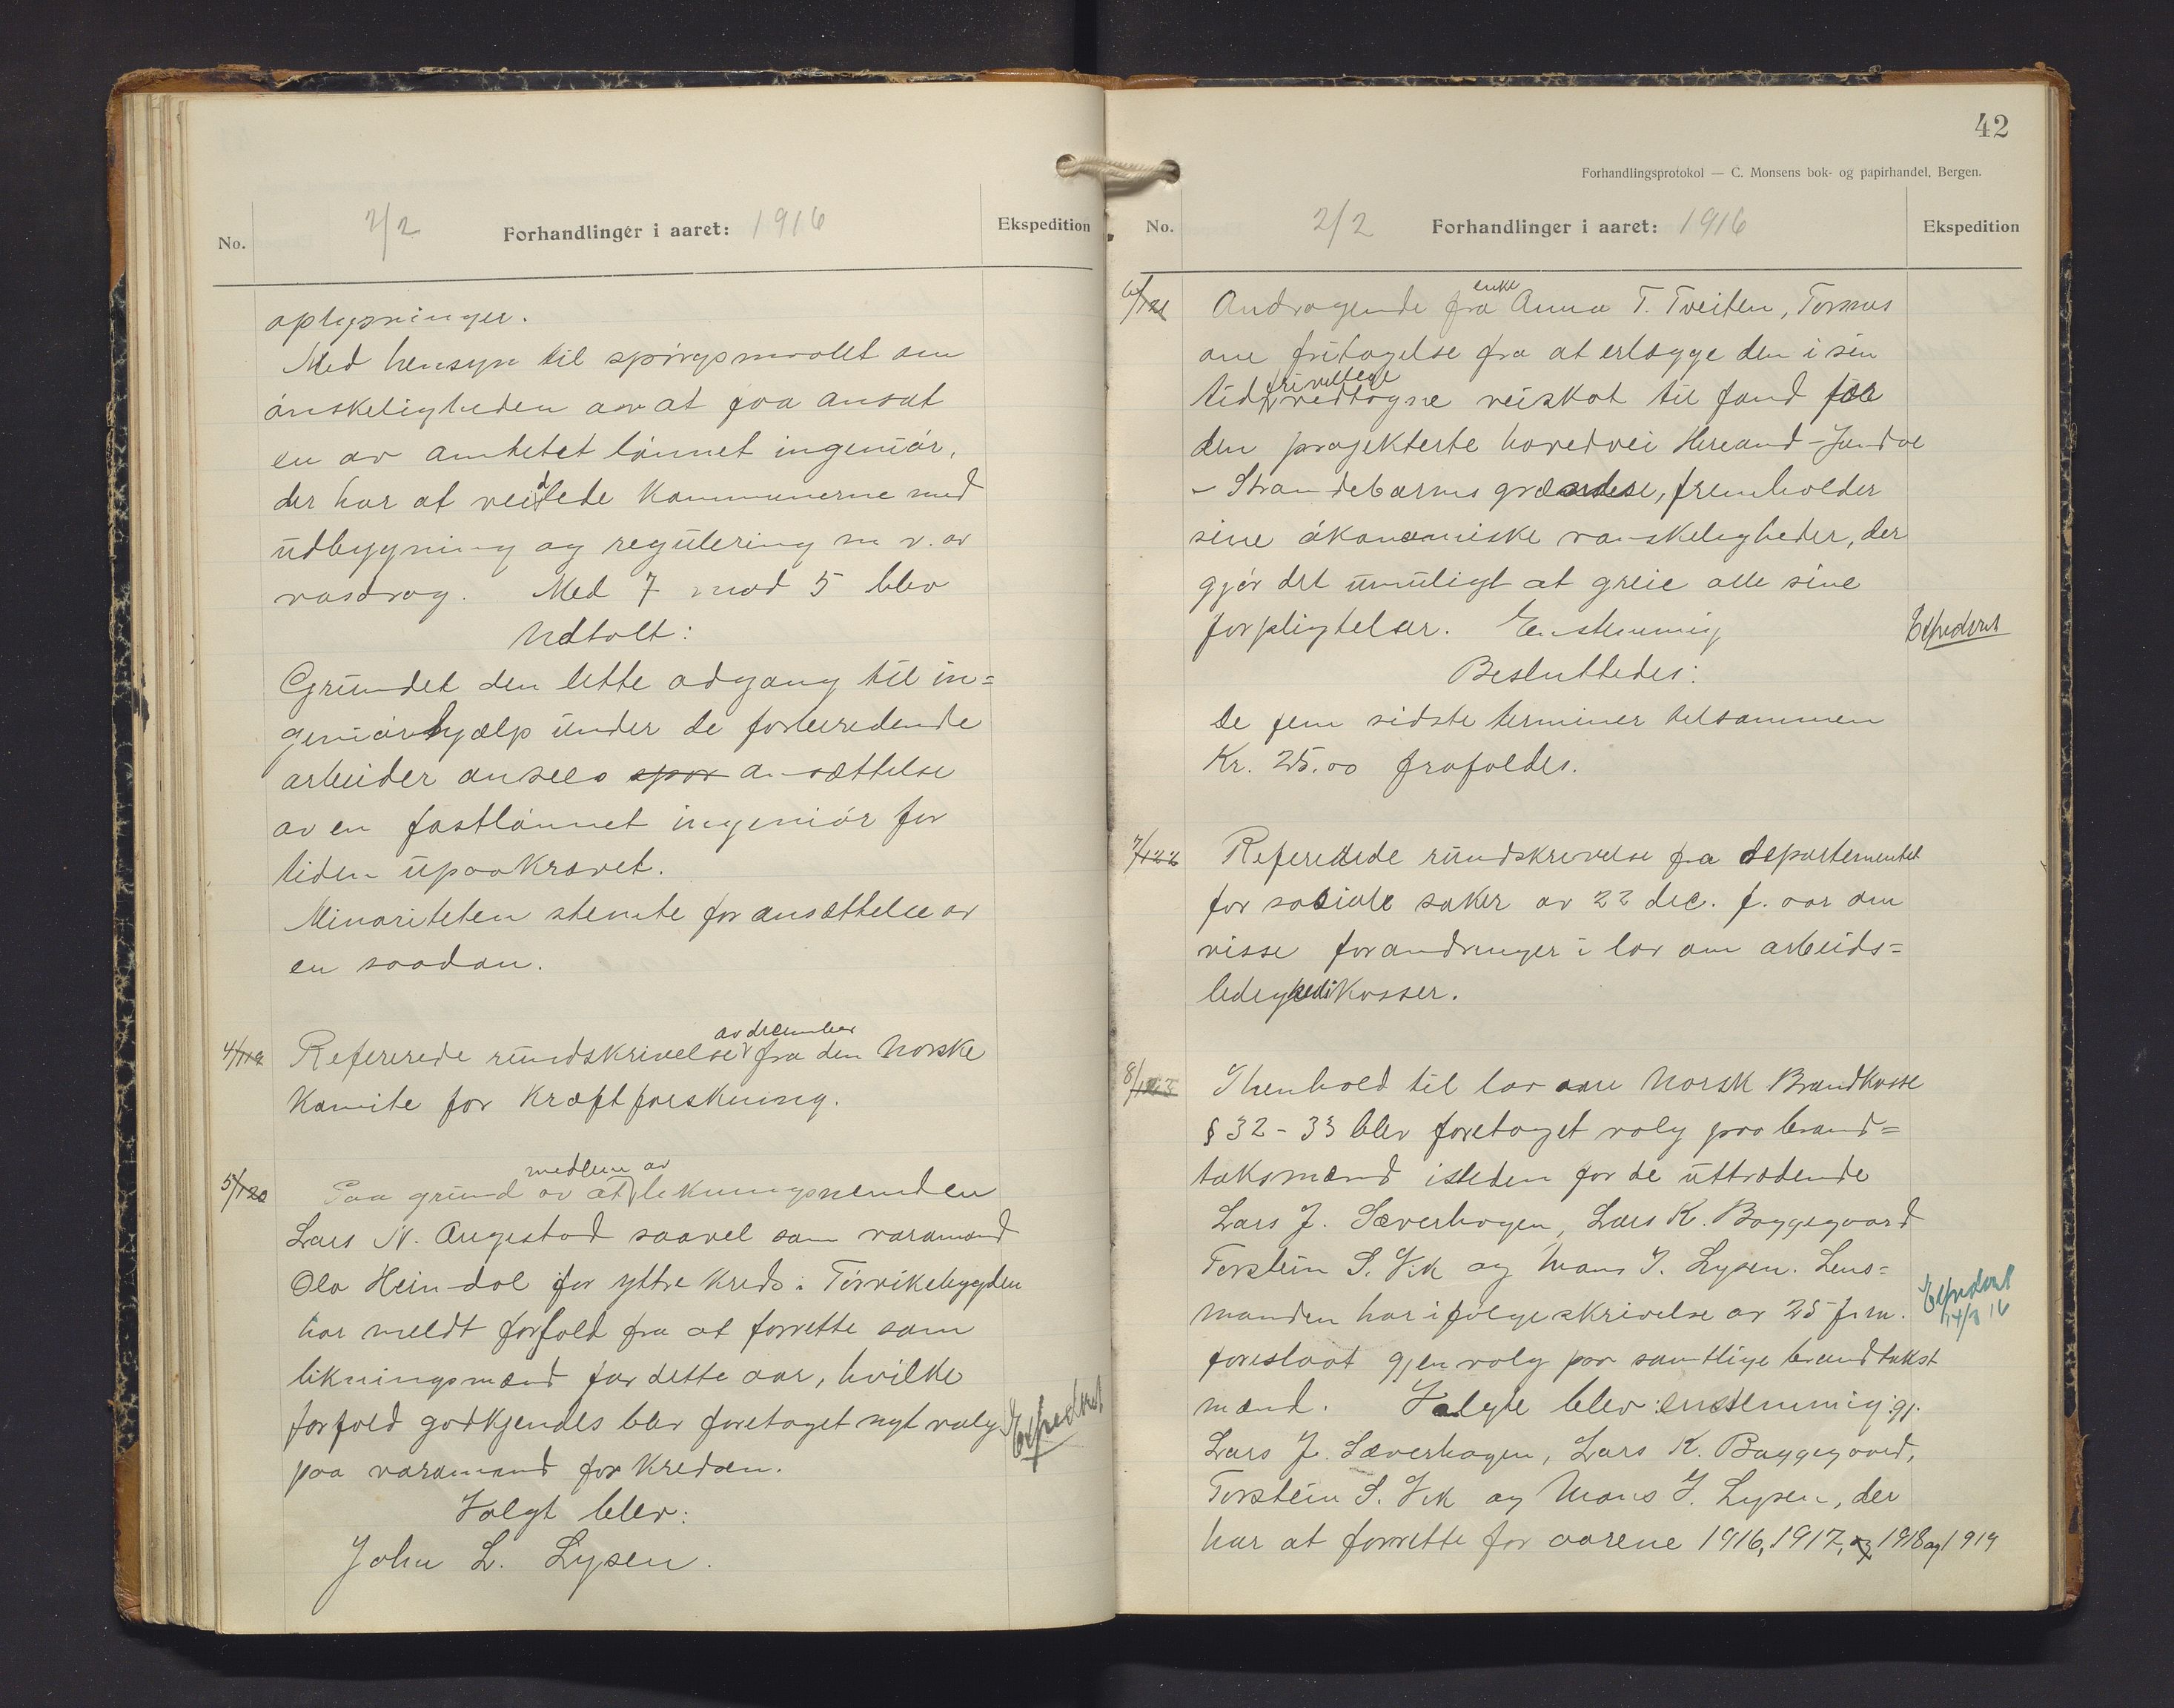 2/2 Forhandlinger i aaret: 1916
No.
Ekspedition
oplysninger.
Med hensyn til spörgsmaalet om
önskeligheden av at faa ansat
en av amtetet lönnet ingeniör,
der har at veilede kommunerne med
udbygning og regulering m v. av
vasdrag. Med 7 mod 5 blev
Udtalt:
Grundet den lette adgang til in=
geniörhjælp under de forberedende
arbeider ansees ansættelse
av en fastlönnet ingeniör for
tiden upaakrævet.
Minoriteten stemte for ansættelse av
en saadan.
4/119 Refererede rundskrivelse av december fra den Norske
Komite for Kræftforskning.
5/120 Paa grund av at medlem av likningsnemden
Lars N. Augestad saavel som varamand
Ola Heindal for yttre kreds i Törvikebygden
har meldt forfald fra at forrette som
likningsmænd for dette aar, hvilke
forfald godkjendes blev foretaget nyt valg
Expederet
paa varamand for kredsen.
Valgt blev:
John L. Lysen.
42
Forhandlingsprotokol — C. Monsens bok- og papirhandel, Bergen.
No.
2/2 Forhandlinger i aaret: 1916
Ekspedition
6/121 Andragende fra enke Anna T. Tveiten, Tornus
om fritagelse fra at erlægge den i sin
tid frivillege vedtagne veiskat til fond for
den projekterte hovedvei Hereand-Jondal
- Strandebarms grændse, fremholder
sine ökonomiske vanskeligheder, der
gjör det umuligt at greie alle sine
forpligtelser. Enstemmig
Expederet
Besluttedes:
De fem sidste terminer tilsammen
Kr. 25.00 frafaldes.
7/122 Refererede rundskrivelse fra departementet
for sociale saker av 22 dec. f. aar om
visse forandringer i lov om arbeids=
ledighedskasser.
8/123 I henhold til lov om Norsk Brandkasse
§ 32-33 blev foretaget valg paa brand=
taksmænd isteden for de uttrædende
Lars J. Sæverhagen, Lars K. Baggegaard
Torstein S. Vik og Mons J. Lysen. Lens=
manden har ifölge skrivelse av 25 f.m.
Expederet
14/3 16
foreslaat gjenvalg paa samtlige brandtakst
mænd. Valgte blev: enstemmig: gj.
Lars J. Sæverhagen, Lars K. Baggegaard,
Torstein S. Vik og Mons J. Lysen, der
har at forrette for aarene 1916, 1917, 1918 og 1919